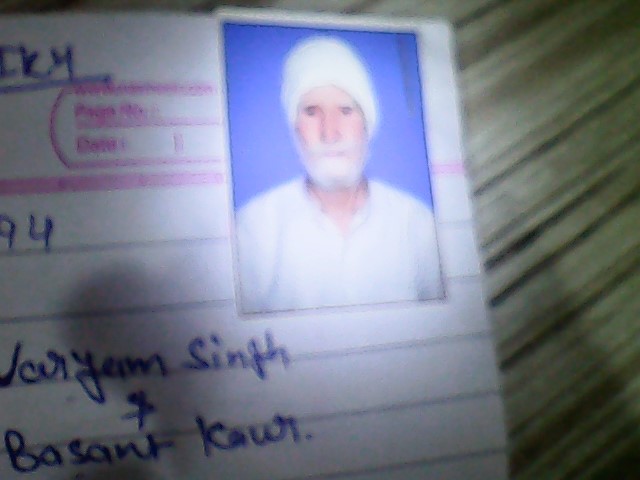 IKY
Page No.:
Date:
94
Varyam Singh
&
Basant Kaur.